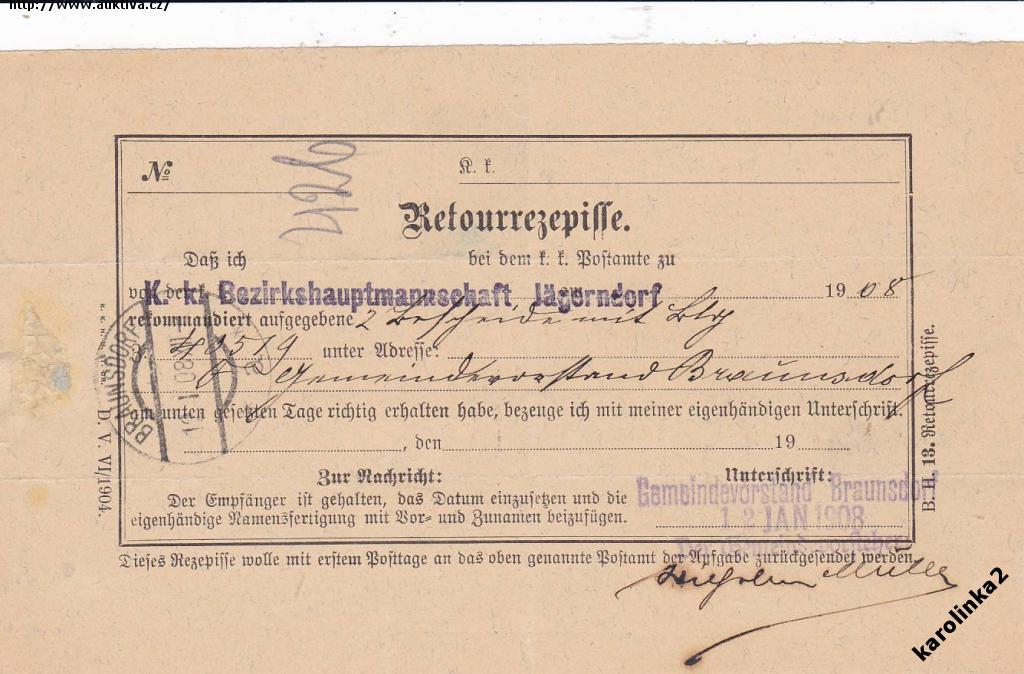 http://www.auktiva.cz/
№
K. k.
Retourrezepisse.
Daß ich bei dem k. k. Postamte zu
von der K. k. Bezirkshauptmannschaft Jägerndorf am 1908
rekommandiert aufgegebene 2 Bescheide mit
unter Adresse:
Gemeindevorstand Braunsdorf
am unten gesetzten Tage richtig erhalten habe, bezeuge ich mit meiner eigenhändigen Unterschrift.
, den 19
Zur Nachricht:
Unterschrift:
Der Empfänger ist gehalten, das Datum einzusetzen und die
eigenhändige Namensfertigung mit Vor- und Zunamen beizufügen.
Gemeindevorstand Braunsdorf
12 JAN 1908
Der Gemeindevorsteher
Dieses Rezepisse wolle mit erstem Posttage an das oben genannte Postamt der Aufgabe zurückgesendet werden.
Wilhelm Müller
BRAUNSDORF
D. V. VI/1904.
B. H. 13. Retourrezepisse.
karolinka2